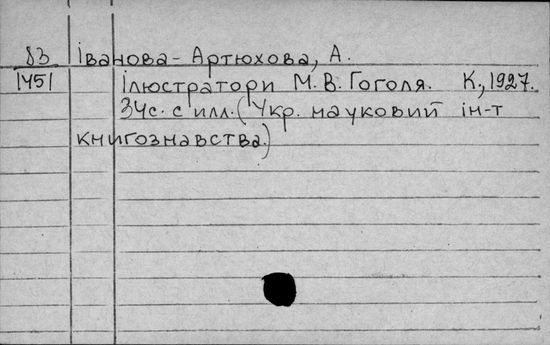 83 Іванова-Артюхова, А.
1451 Ілюстратори М.В. Гоголя. К., 1927.
34с. с илл. (Укр. науковий ін-т
книгознавства.)